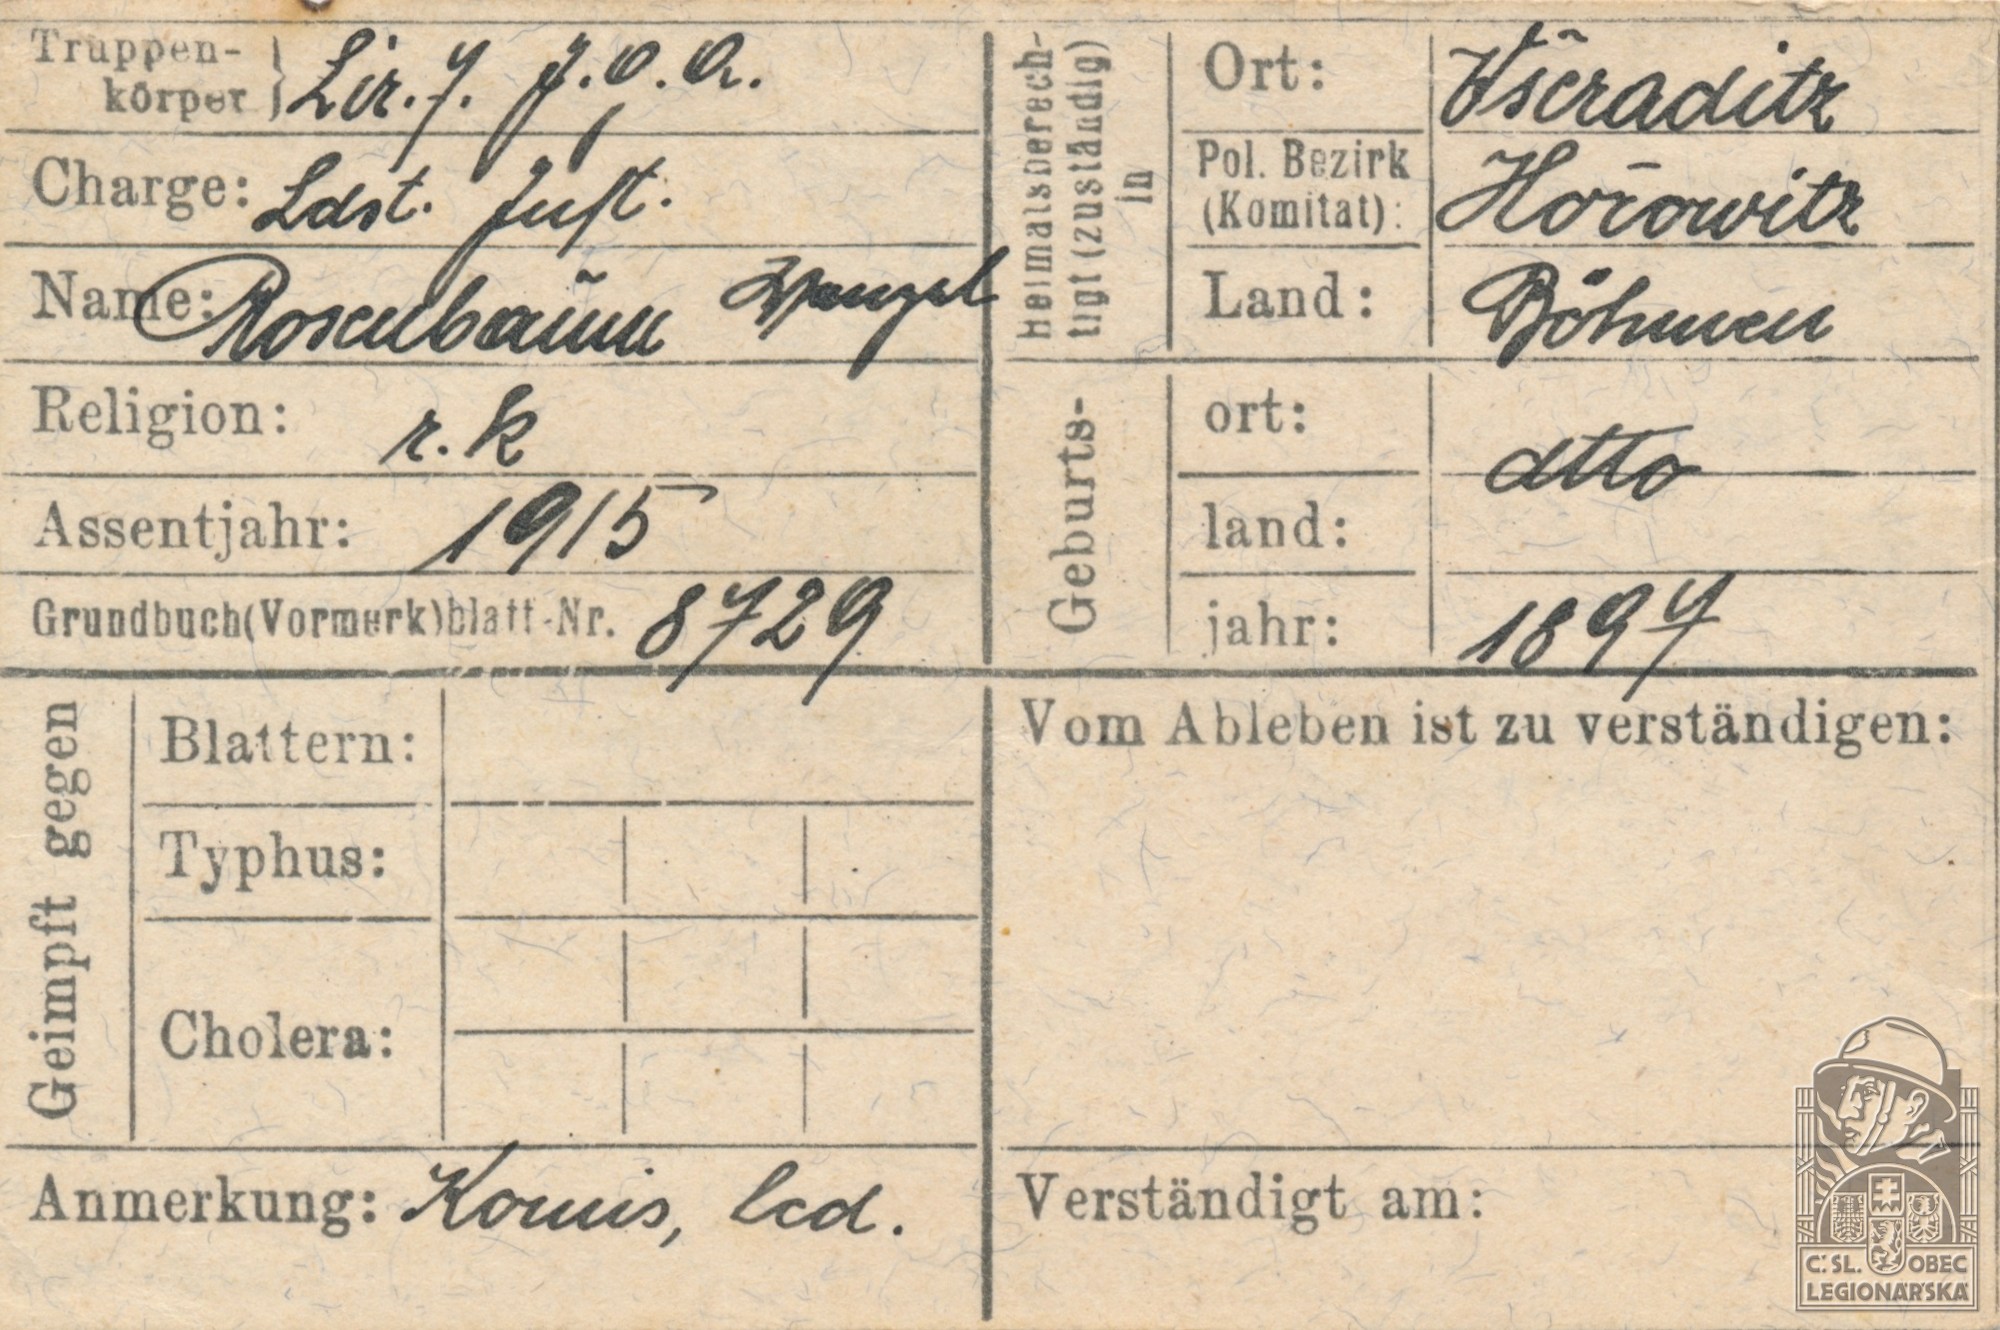 Truppenkörper } Lir. 7. J.O.A.
Charge: Ldst. Inft.
Name: Rosenbaum Wenzel
Religion: r. k
Assentjahr: 1915
Grundbuch(Vormerk)blatt-Nr. 8729
Heimatsberechtigt (zuständig) in
Ort: Wšeraditz
Pol. Bezirk (Komitat): Hořowitz
Land: Böhmen
Geburts-
ort: dtto
land:
jahr: 1897
Geimpft gegen
Blattern:
Typhus:
Cholera:
Anmerkung: Komis, led.
Vom Ableben ist zu verständigen:
Verständigt am:
Č.SL. OBEC
LEGIONÁŘSKÁ